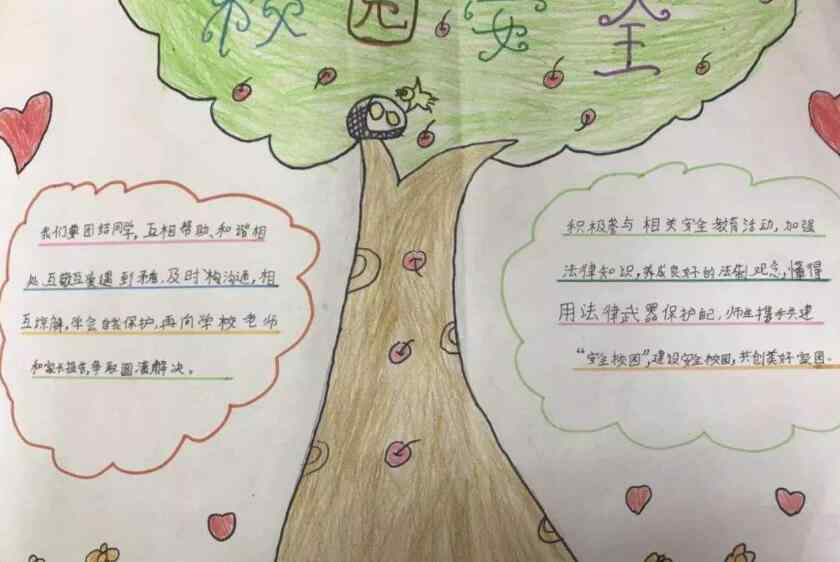 校园安全
我们要团结同学,互相帮助、和谐相
处、互敬互爱遇到矛盾,及时沟通,相
互谅解,学会自我保护,再向学校老师
和家长报告,争取圆满解决。
积极参与相关安全教育活动,加强
法律知识,养成良好的法制观念,懂得
用法律武器保护自己,师生携手共建
“安全校园”,建设安全校园,共创美好家园.